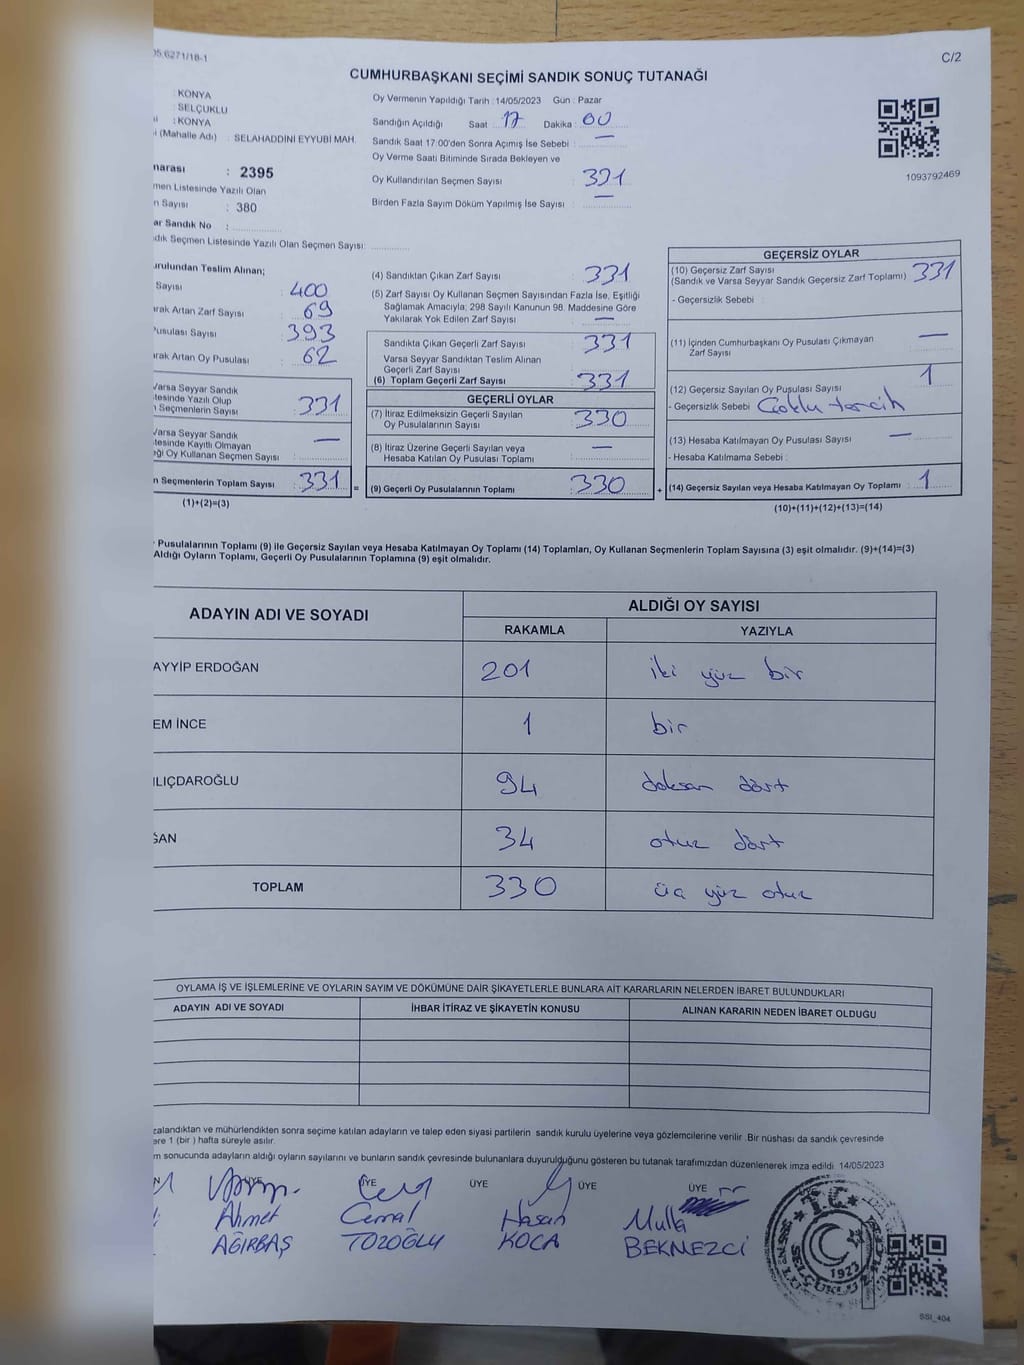 05.6271/18-1
C/2
CUMHURBAŞKANI SEÇİMİ SANDIK SONUÇ TUTANAĞI
: KONYA
: SELÇUKLU
: KONYA
(Mahalle Adı) : SELAHADDİNİ EYYUBİ MAH.
narası : 2395
men Listesinde Yazılı Olan
n Sayısı : 380
ar Sandık No :
dık Seçmen Listesinde Yazılı Olan Seçmen Sayısı:
Oy Vermenin Yapıldığı Tarih : 14/05/2023 Gün : Pazar
Sandığın Açıldığı Saat : 17 Dakika : 00
Sandık Saat 17:00'den Sonra Açımış İse Sebebi : —
Oy Verme Saati Bitiminde Sırada Bekleyen ve
Oy Kullandırılan Seçmen Sayısı 331
Birden Fazla Sayım Döküm Yapılmış İse Sayısı : —
1093792469
urulundan Teslim Alınan;
Sayısı : 400
arak Artan Zarf Sayısı : 69
Pusulası Sayısı : 393
arak Artan Oy Pusulası : 62
Varsa Seyyar Sandık
tesinde Yazılı Olup
n Seçmenlerin Sayısı : 331
Varsa Seyyar Sandık
tesinde Kayıtlı Olmayan
eği Oy Kullanan Seçmen Sayısı : —
n Seçmenlerin Toplam Sayısı : 331 =
(1)+(2)=(3)
(4) Sandıktan Çıkan Zarf Sayısı : 331
(5) Zarf Sayısı Oy Kullanan Seçmen Sayısından Fazla İse, Eşitliği
Sağlamak Amacıyla; 298 Sayılı Kanunun 98. Maddesine Göre
Yakılarak Yok Edilen Zarf Sayısı : —
Sandıkta Çıkan Geçerli Zarf Sayısı : 331
Varsa Seyyar Sandıktan Teslim Alınan
Geçerli Zarf Sayısı
(6) Toplam Geçerli Zarf Sayısı : 331
GEÇERLİ OYLAR
(7) İtiraz Edilmeksizin Geçerli Sayılan
Oy Pusulalarının Sayısı : 330
(8) İtiraz Üzerine Geçerli Sayılan veya
Hesaba Katılan Oy Pusulası Toplamı : —
(9) Geçerli Oy Pusulalarının Toplamı : 330 +
GEÇERSİZ OYLAR
(10) Geçersiz Zarf Sayısı
(Sandık ve Varsa Seyyar Sandık Geçersiz Zarf Toplamı) : 331
- Geçersizlik Sebebi :
(11) İçinden Cumhurbaşkanı Oy Pusulası Çıkmayan
Zarf Sayısı —
(12) Geçersiz Sayılan Oy Pusulası Sayısı : 1
- Geçersizlik Sebebi Çoklu tercih
(13) Hesaba Katılmayan Oy Pusulası Sayısı : —
- Hesaba Katılmama Sebebi :
(14) Geçersiz Sayılan veya Hesaba Katılmayan Oy Toplamı : 1
(10)+(11)+(12)+(13)=(14)
Pusulalarının Toplamı (9) ile Geçersiz Sayılan veya Hesaba Katılmayan Oy Toplamı (14) Toplamları, Oy Kullanan Seçmenlerin Toplam Sayısına (3) eşit olmalıdır. (9)+(14)=(3)
Aldığı Oyların Toplamı, Geçerli Oy Pusulalarının Toplamına (9) eşit olmalıdır.
ADAYIN ADI VE SOYADI
ALDIĞI OY SAYISI
RAKAMLA YAZIYLA
AYYİP ERDOĞAN 201 iki yüz bir
EM İNCE 1 bir
ILIÇDAROĞLU 94 doksan dört
ĞAN 34 otuz dört
TOPLAM 330 üç yüz otuz
OYLAMA İŞ VE İŞLEMLERİNE VE OYLARIN SAYIM VE DÖKÜMÜNE DAİR ŞİKAYETLERLE BUNLARA AİT KARARLARIN NELERDEN İBARET BULUNDUKLARI
ADAYIN ADI VE SOYADI İHBAR İTİRAZ VE ŞİKAYETİN KONUSU ALINAN KARARIN NEDEN İBARET OLDUĞU
zalandıktan ve mühürlendikten sonra seçime katılan adayların ve talep eden siyasi partilerin sandık kurulu üyelerine veya gözlemcilerine verilir .Bir nüshası da sandık çevresinde
ere 1 (bir ) hafta süreyle asılır.
m sonucunda adayların aldığı oyların sayılarını ve bunların sandık çevresinde bulunanlara duyurulduğunu gösteren bu tutanak tarafımızdan düzenlenerek imza edildi. 14/05/2023
ÜYE ÜYE ÜYE ÜYE ÜYE
Ahmet Cemal Hasan Mulla
AĞIRBAŞ TOZOĞLU KOCA BEKMEZCİ
T.C.
1923
SELÇUKLU
SSI_404